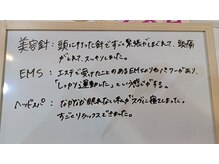 美容針：頭にうってもらった針ですごく緊張がほぐれて、頭痛
がとれて、スッキリしました。
EMS：エステで受けたことのあるEMSよりもパワーがあり、
「しっかり運動した」という感じがする。
ヘッドスパ：なかなか眠れない私がスグに寝てしまった。
すごくリラックスできました。